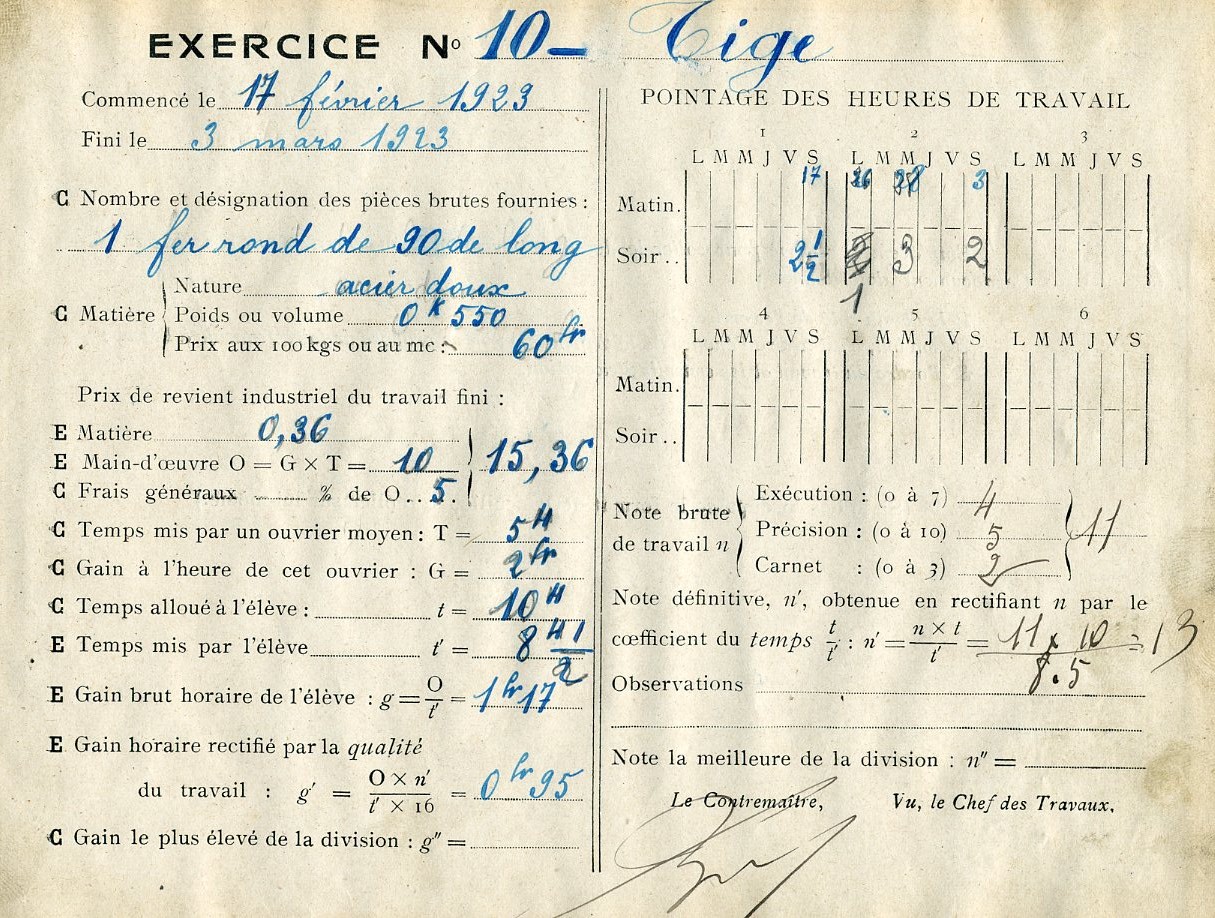 EXERCICE Nº 10 – Tige
Commencé le 17 février 1923
Fini le 3 mars 1923
C Nombre et désignation des pièces brutes fournies :
1 fer rond de 90 de long
C Matière
Nature acier doux
Poids ou volume 0 k 550
Prix aux 100 kgs ou au mc : 60 fr
Prix de revient industriel du travail fini :
E Matière 0,36
E Main-d'œuvre O = G × T = 10
C Frais généraux % de O.. 5.
15,36
C Temps mis par un ouvrier moyen : T = 5 H
C Gain à l'heure de cet ouvrier : G = 2 fr
C Temps alloué à l'élève : t = 10 H
E Temps mis par l'élève t' = 8 H 1/2
E Gain brut horaire de l'élève : g = O/t' = 1 fr 17
E Gain horaire rectifié par la qualité
du travail : g' = O × n' / t' × 16 = 0 fr 95
C Gain le plus élevé de la division : g'' =
POINTAGE DES HEURES DE TRAVAIL
1 2 3
L M M J V S L M M J V S L M M J V S
Matin. 17 28 3
Soir .. 2 1/2 3 2
1
4 5 6
L M M J V S L M M J V S L M M J V S
Matin.
Soir ..
Note brute de travail n
Exécution : (0 à 7) 4
Précision : (0 à 10) 5
Carnet : (0 à 3) 2
11
Note définitive, n', obtenue en rectifiant n par le
cœfficient du temps t/t' : n' = n × t / t' = 11 x 10 / 8.5 = 13
Observations
Note la meilleure de la division : n'' =
Le Contremaître, Vu, le Chef des Travaux,